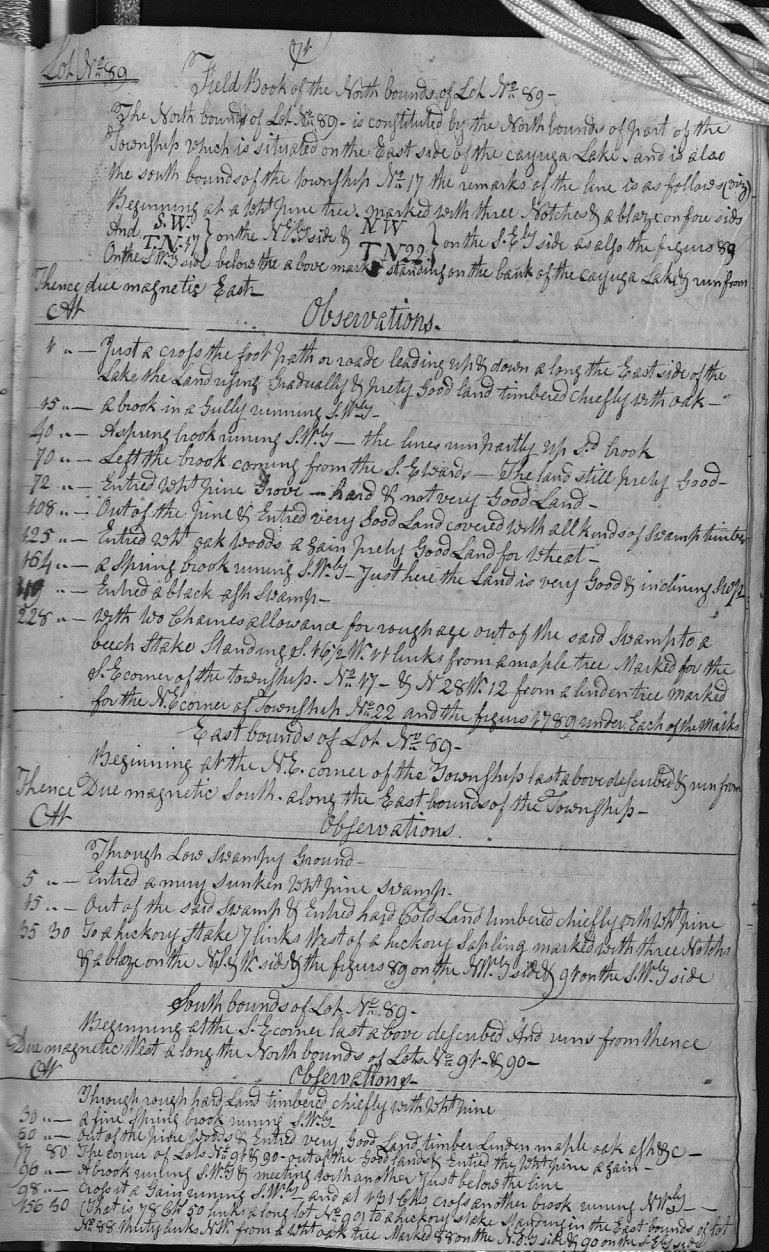 Lot No. 89
Field Book of the North bounds of Lot No. 89 -
The North bounds of Lot No. 89 - is constituted by the North bounds of part of the
Township which is situated on the East side of the cayuga Lake. and is also
the south bounds of the township No. 17 the remarks of the line is as follows (viz)
Beginning at a Wht pine tree. marked with three Notches & a blaze on four sids
And S.W. T.N. 17 } on the N.Ely side & N W T N 22 } on the S.Ely side as also the figurs 89
On the S.Wly side below the above mark standing on the bank of the cayuga Lake & run from
Thence due magnetic East
At Observations.
4 " — Just a cross the foot path or roade leading up & down a long the East side of the
Lake the Land rising Gradually & prety Good land timbered chiefly with oak —
15 " — a brook in a Gully running S.Wly -
40 " — A spring brook runing S.Wly — the lines run partly up sd brook
70 " — Left the brook coming from the S.Ewards — The land still prety Good —
72 " — Entred Wht pine Grove — hard & not very Good Land —
108 " — Out of the pine & Entred very Good Land covered with all kinds of Swamp timber
125 " — Entred Wht oak woods a gain prety Good Land for Wheat —
164 " — a Spring brook runing S.Wly — Just here the Land is very Good & inclining
" — Entred a black ash Swamp —
228 " — With two Chaines allowance for roughage out of the said Swamp to a
beech Stake Standing S. 16 1/2 W. 11 links from a maple tree Marked for the
S.E corner of the township. No. 17 - & N 28 W. 12 from a linden tree marked
for the N.E corner of Township No. 22 and the figurs 1789 under Each of the Marks
East bounds of Lot No. 89 -
Beginning at the N.E. corner of the Township last above described & run from
Thence Due magnetic South. along the East bounds of the Township —
At Observations.
Through Low Swampy Ground —
5 " — Entred a miry sunken Wht pine swamp.
15 " — Out of the said Swamp & Entred hard Cold Land timbered chiefly with Wht pine
35 30 To a hickory Stake 7 links West of a hickory Sapling marked with three Notchs
& a blaze on the N.S.E & W. sids & the figurs 89 on the N.Wly side & 91 on the S.Wly side
South bounds of Lot No. 89 -
Beginning at the S.E corner last a bove described And runs from thence
Due magnetic West a long the North bounds of Lots No. 91 - & 90 —
At Observations -
Through rough hard Land timbered chiefly with Wht pine
30 " — a fine spring brook runing S.Wly
60 " — out of the pine Woods & Entred very Good Land timber Linden maple oak ash &c —
77 80 The corner of Lots No. 91 & 90 - out of the Good land & Entred the Wht pine again —
96 " — A brook runing S.Wly & meeting with another Just below the line
98 " — Cross it a Gain runing S.Wly — and at 131 Chs cross another brook runing N.Wly —
156 30 (That is 78 Chs 50 links a long lot No. 90) to a hickory stake standing in the East bounds of lot
No. 88 thirty links N.W. from a Wht oak tree Marked 88 on the N.Ely side & 90 on the S.Ely side